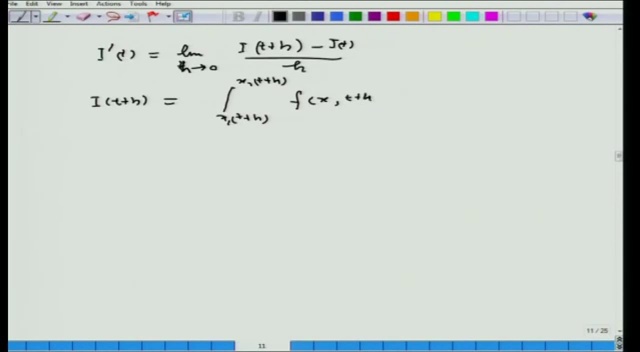 File Edit View Insert Actions Tools Help
I'(t) = lim h→0 I(t+h) − I(t) / h
I(t+h) = ∫ x₁(t+h) x₂(t+h) f(x, t+h
11 / 25
11